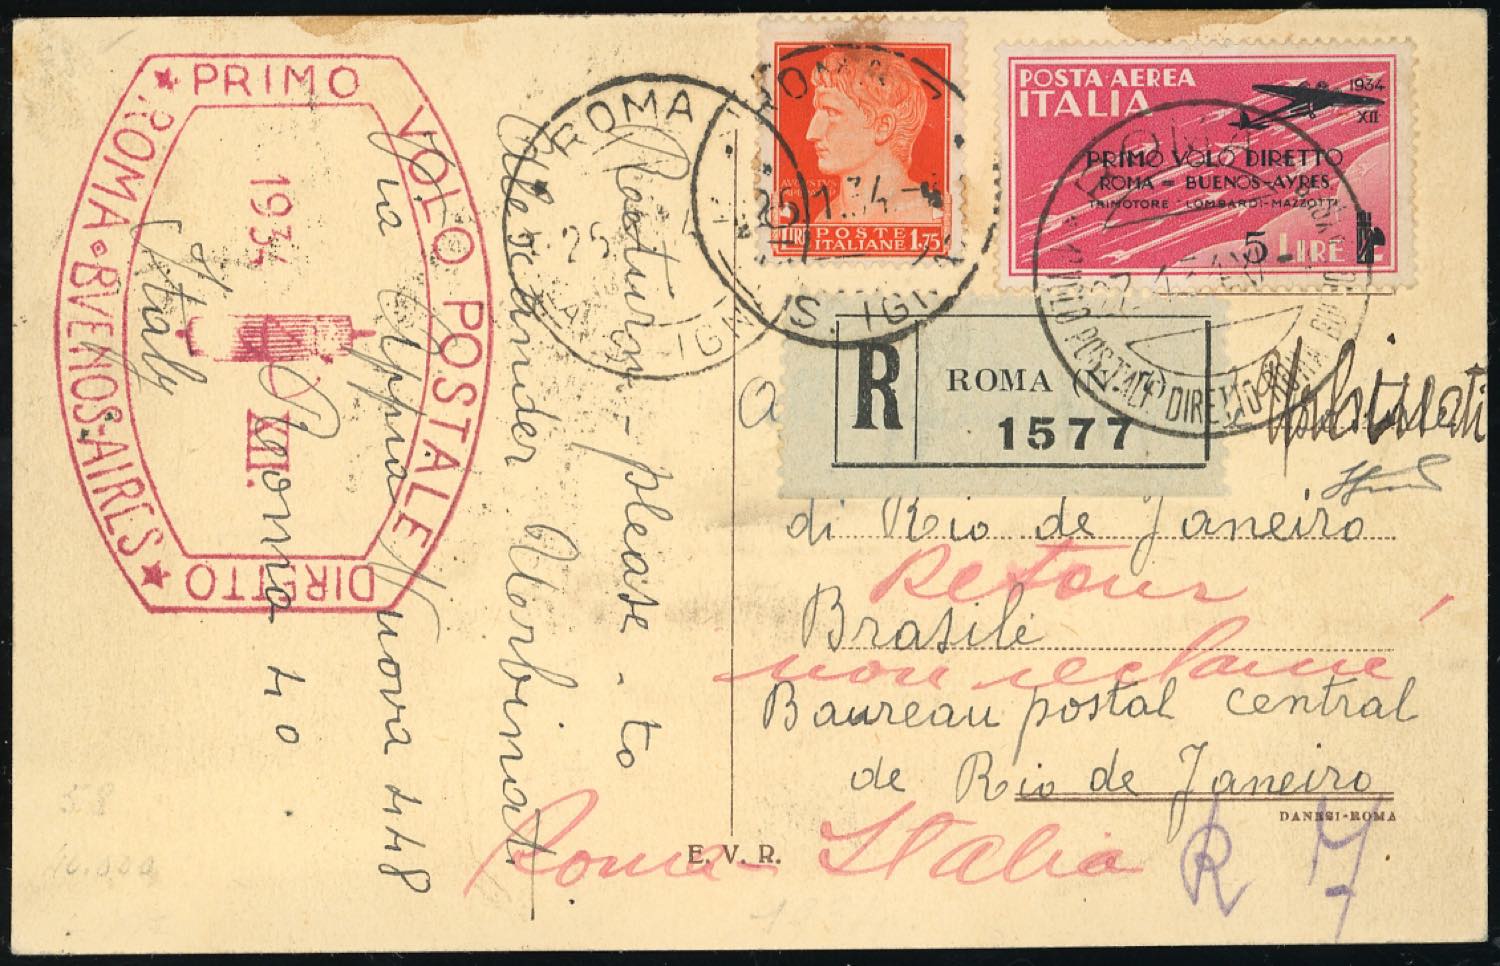 ★ PRIMO VOLO POSTALE DIRETTO ★
ROMA • BVENOS-AIRES
1934
XII.
Return - please - to
Alexander
Via Appia Nuova 448
Roma 40
Italy
ROMA
25
ROMA
25 1.34
POSTE ITALIANE 1.75
LIRE
POSTA AEREA
ITALIA
1934
XII
PRIMO VOLO DIRETTO
ROMA = BUENOS-AYRES
TRIMOTORE "LOMBARDI-MAZZOTTI"
5 LIRE
R
ROMA (N. )
1577
di Rio de Janeiro
Retour
Brasile
non reclamé
Baureau postal central
de Rio de Janeiro
DANESI-ROMA
Roma - Italia
E. V. R.
R 7
58